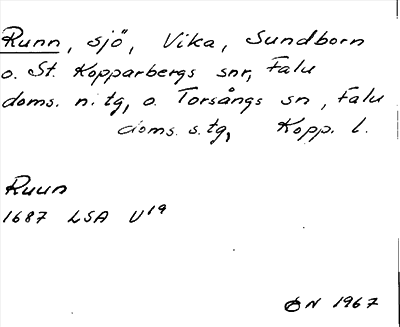 Runn, sjö, Vika, Sundborn
o. St. Kopparbergs snr, Falu
doms. n. tg, o. Torsångs sn, Falu
doms. s. tg, Kopp. l.
Ruun
1687 LSA U19
ÖN 1967